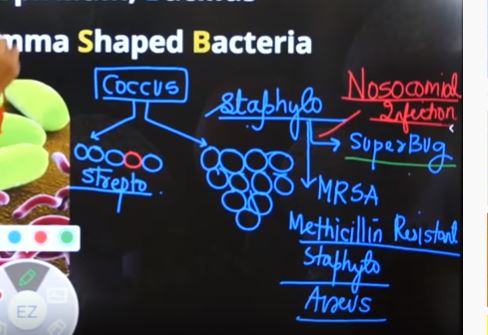 mma Shaped Bacteria
Coccus
Strepto
Staphylo
Nosocomial
Infection
SuperBug
MRSA
Methicillin Resistant
Staphylo
Areus
EZ